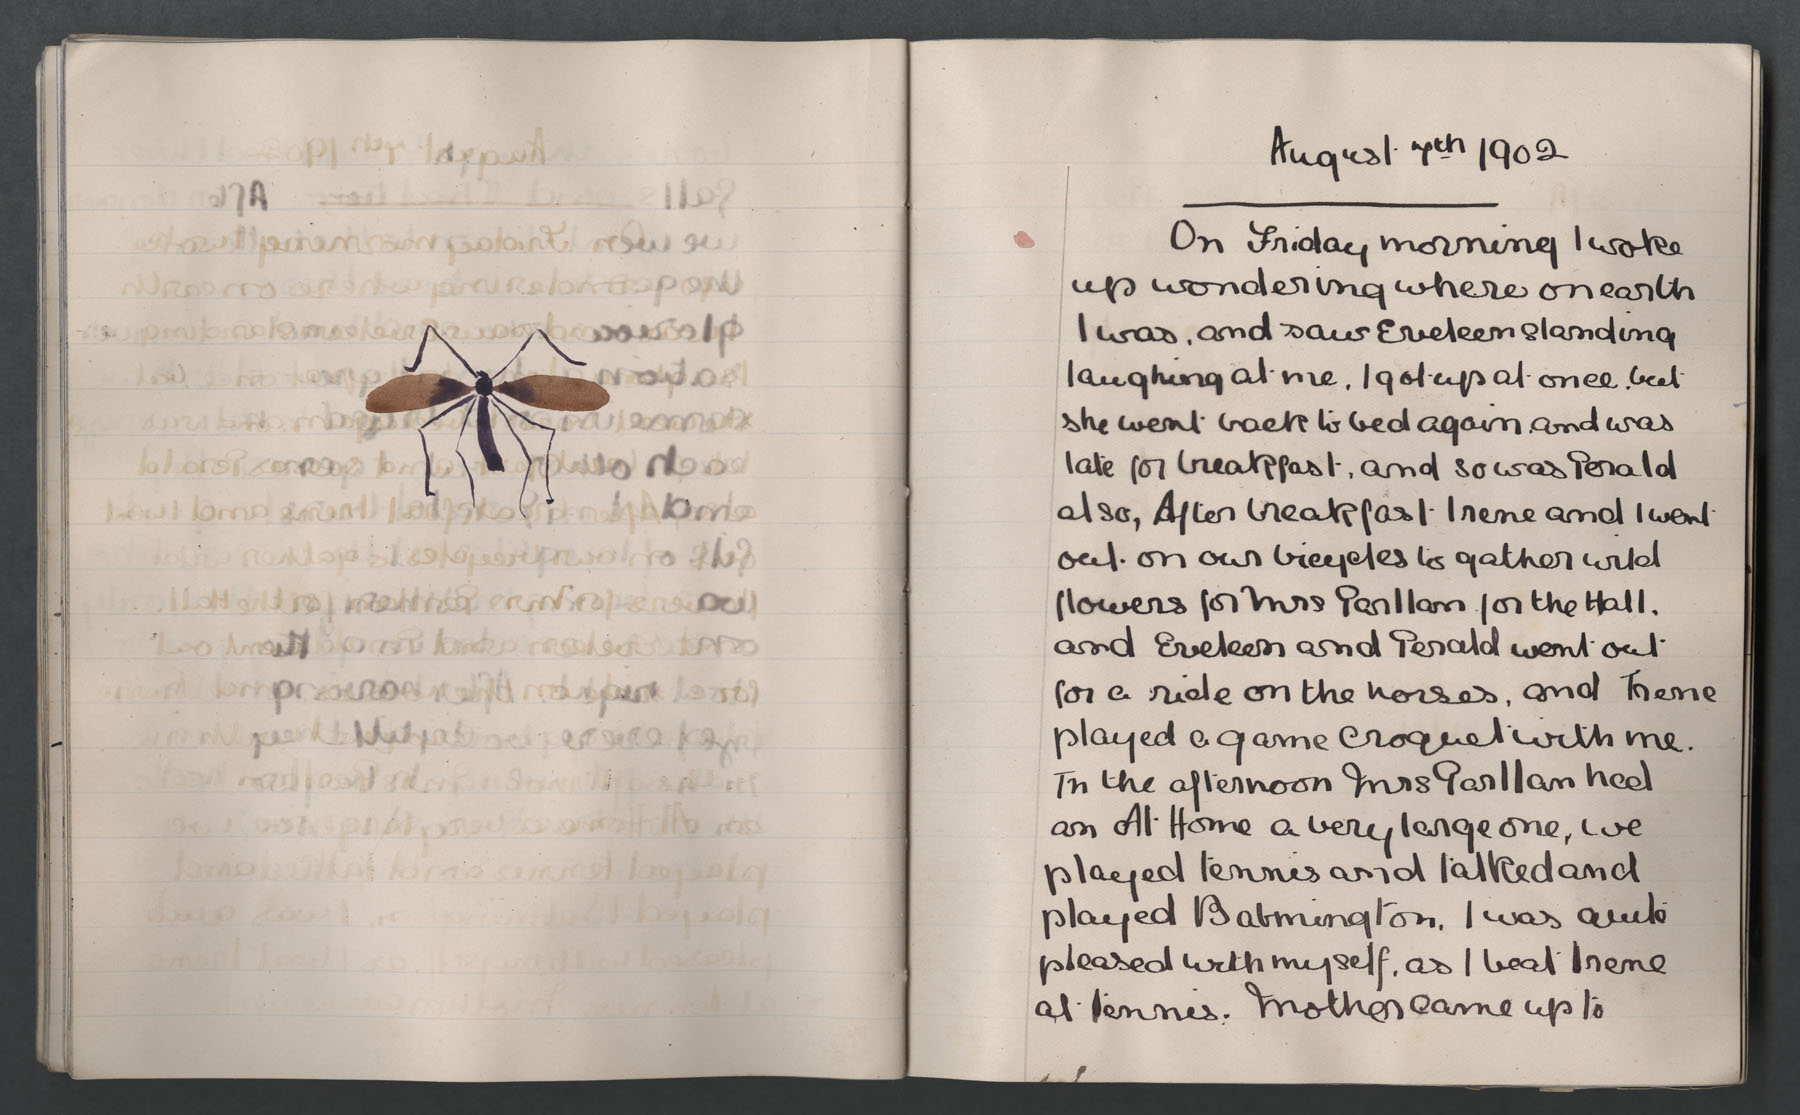 August 7th 1902
On Friday morning I woke
up wondering where on earth
I was, and saw Eveleen standing
laughing at me, I got up at once, but
she went back to bed again, and was
late for breakfast, and so was Gerald
also, After breakfast Irene and I went
out on our bicycles to gather wild
flowers for Mrs for the Hall,
and Eveleen and Gerald went out
for a ride on the horses, and Irene
played a game Croquet with me.
In the afternoon Mrs had
an At Home a very large one, we
played tennis and talked and
played Batmington, I was quite
pleased with myself, as I beat Irene
at tennis. Mother came up to